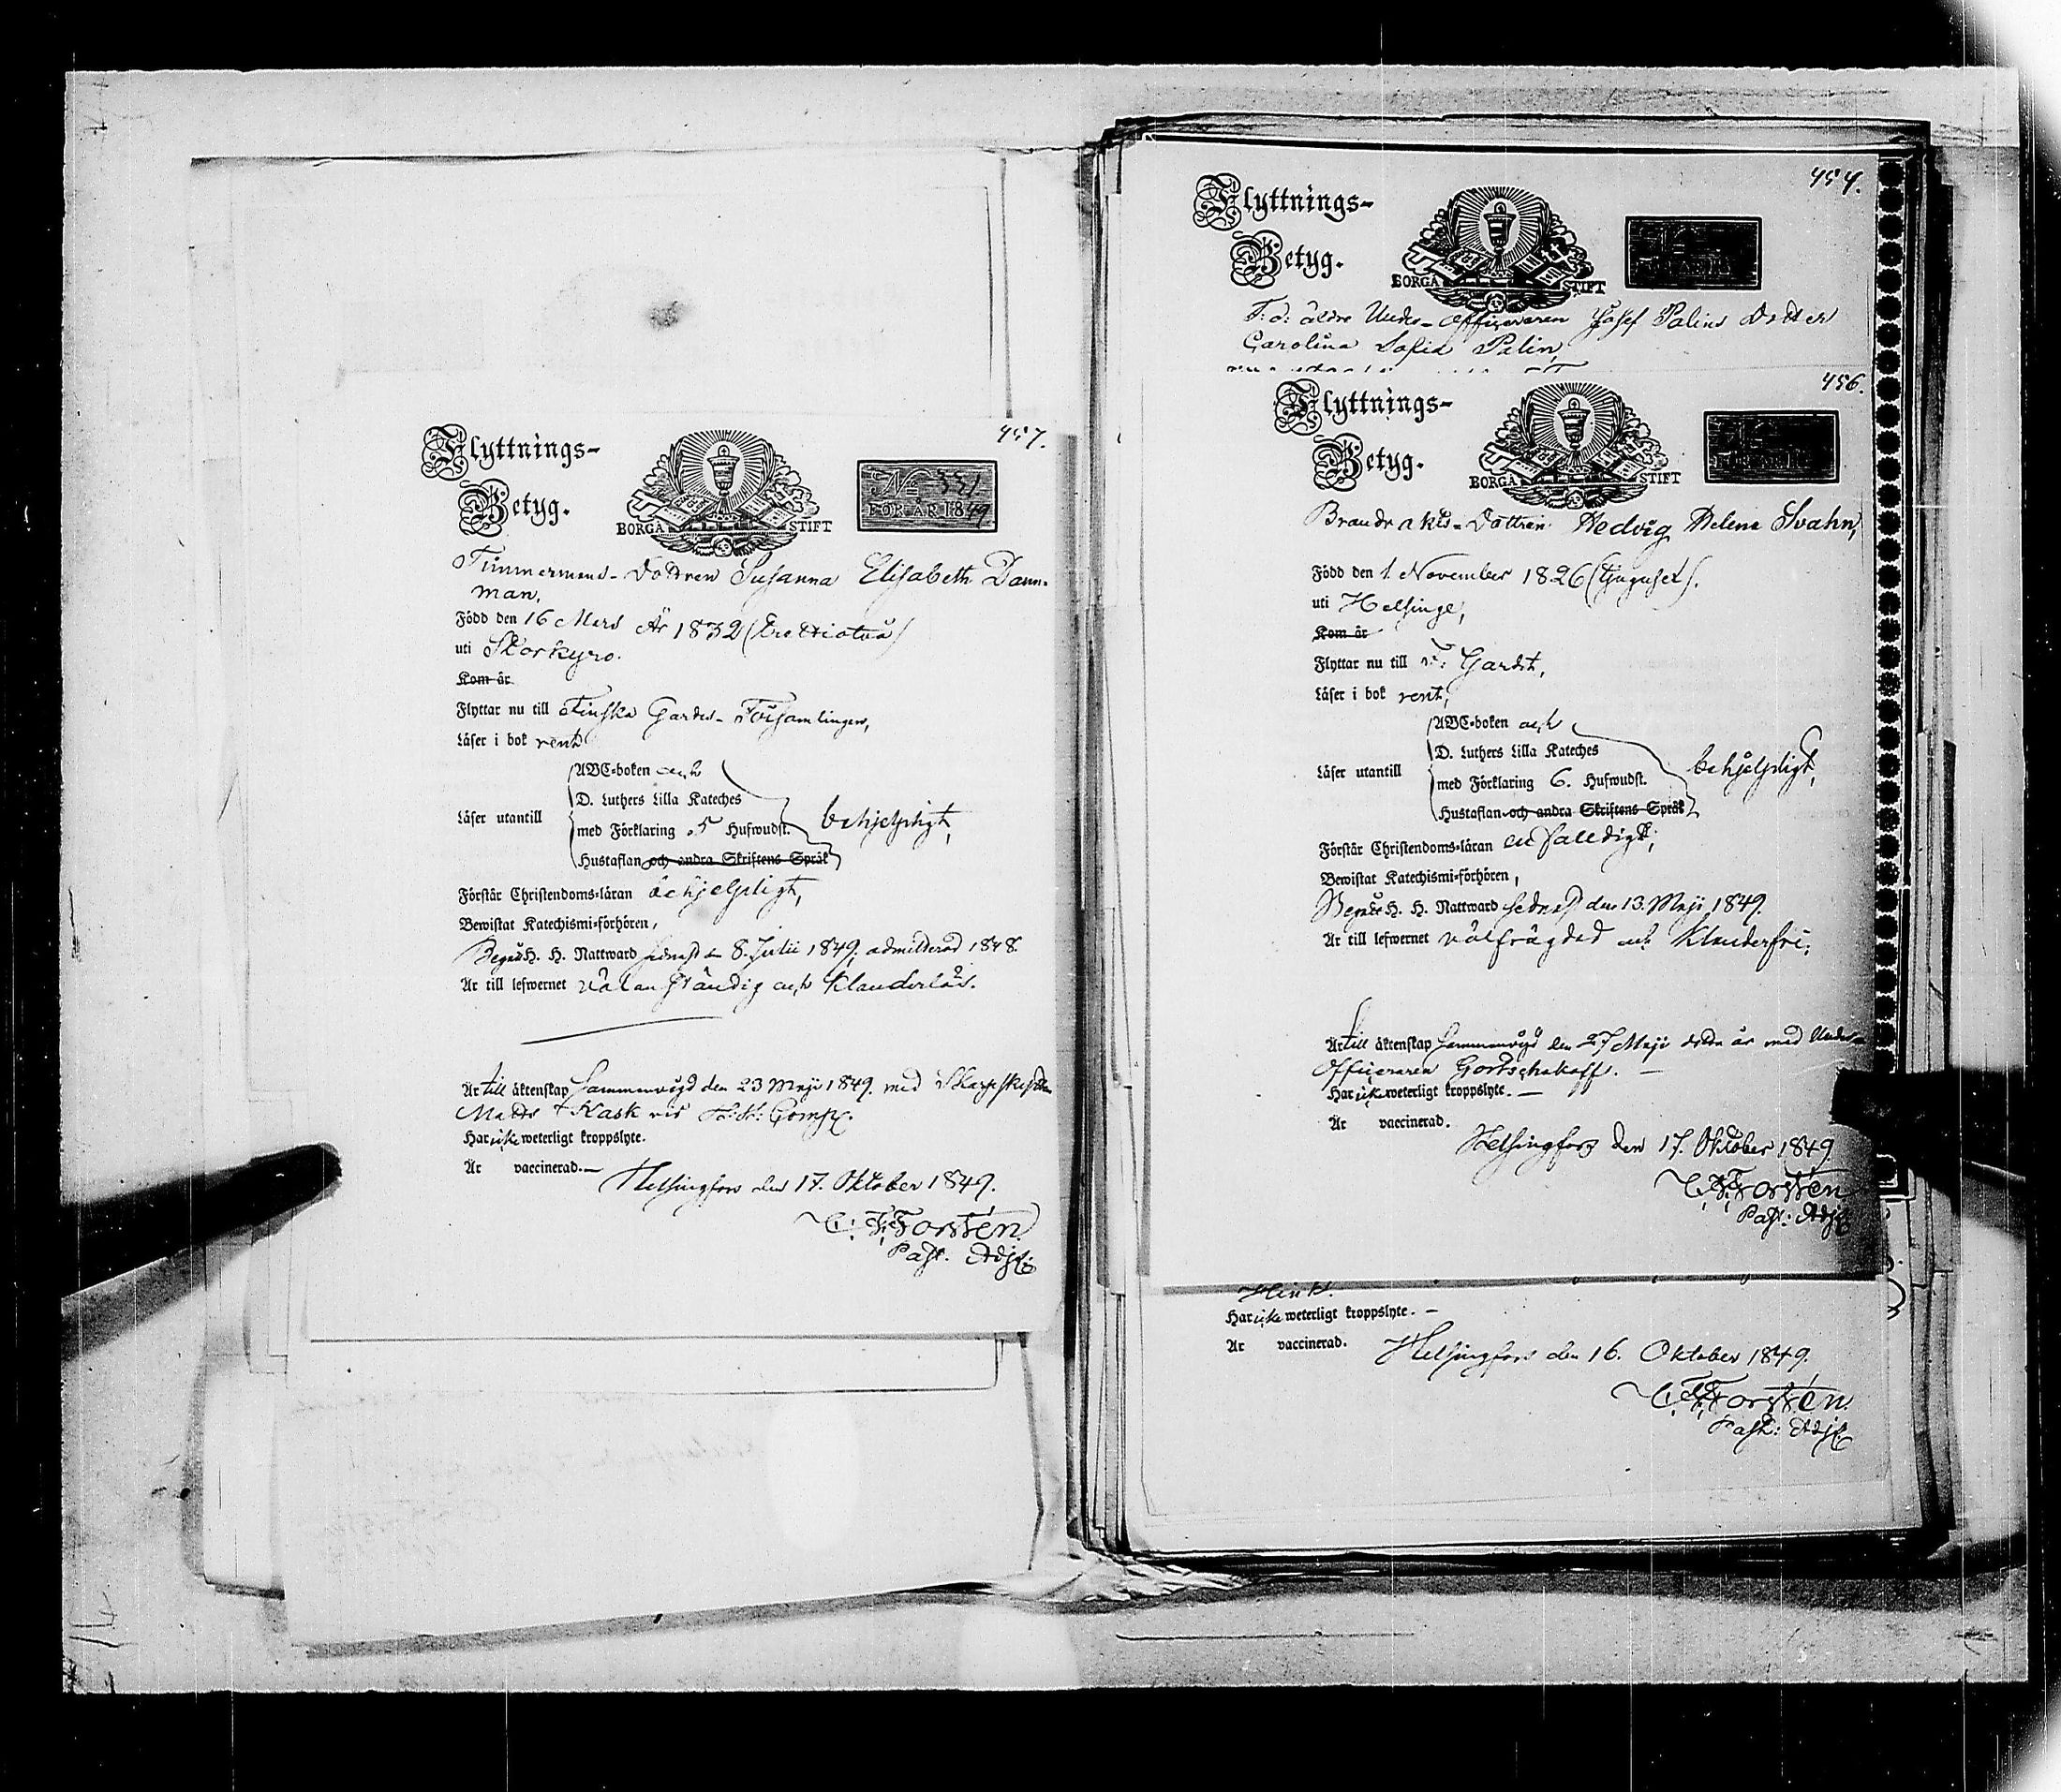 457.
Flyttnings-
Betyg.
BORGÅ STIFT
No 331
FÖR ÅR 1849.
Timmermans-Dottren Susanna Elisabeth Dann-
man,
Född den 16 Mars År 1832 (Trettiotvå)
uti Storkyro.
Kom år
Flyttar nu till Finska Gardes-Församlingen,
Läser i bok rent
Läser utantill
ABC-boken och
D. Luthers Lilla Kateches
med Förklaring 5 Hufwudst.
Hustaflan och andra Skriftens Språk
behjelpligt,
Förstår Christendoms-läran behjelpligt,
Bewistat Katechismi-förhören,
Begått H. H. Nattward sednast den 8. Julii 1849, admitterad 1848.
Är till lefwernet välanständig och klanderlös.
Är till äktenskap sammanvigd den 23 Maji 1849. med
Matts Kask vid Comp.
Har icke weterligt kroppslyte.
Är vaccinerad.—
Helsingfors den 17. Oktober 1849.
C. F. Forstén
Past. Adj.
454.
Flyttnings-
Betyg.
BORGÅ STIFT
F: d: äldre Under-Officeraren Josef Palins Dotter
Carolina Sofia Palin,
456.
Flyttnings-
Betyg.
BORGÅ STIFT
Brandvakts-Dottren Hedvig Helena Svahn,
Född den 1 November 1826 (tjugusex).
uti Helsinge,
Kom år
Flyttar nu till F: Gardet,
Läser i bok rent,
Läser utantill
ABC-boken och
D. Luthers Lilla Kateches
med Förklaring 6. Hufwudst.
Hustaflan och andra Skriftens Språk
behjelpligt,
Förstår Christendoms-läran enfalldigt,
Bewistat Katechismi-förhören,
Begått H. H. Nattward sednast den 13. Maji 1849.
Är till lefwernet välfrägdad och klanderfri,
Är till äktenskap sammanvigd den 27 Maji detta år med Under-
Officeraren Gortschakoff. —
Har icke weterligt kroppslyte. —
Är vaccinerad.
Helsingfors den 17. Oktober 1849
C. F. Forstén
Past: Adj.
Har icke weterligt kroppslyte. —
Är vaccinerad.
Helsingfors den 16. Oktober 1849.
C. F. Forstén
Past: Adj.